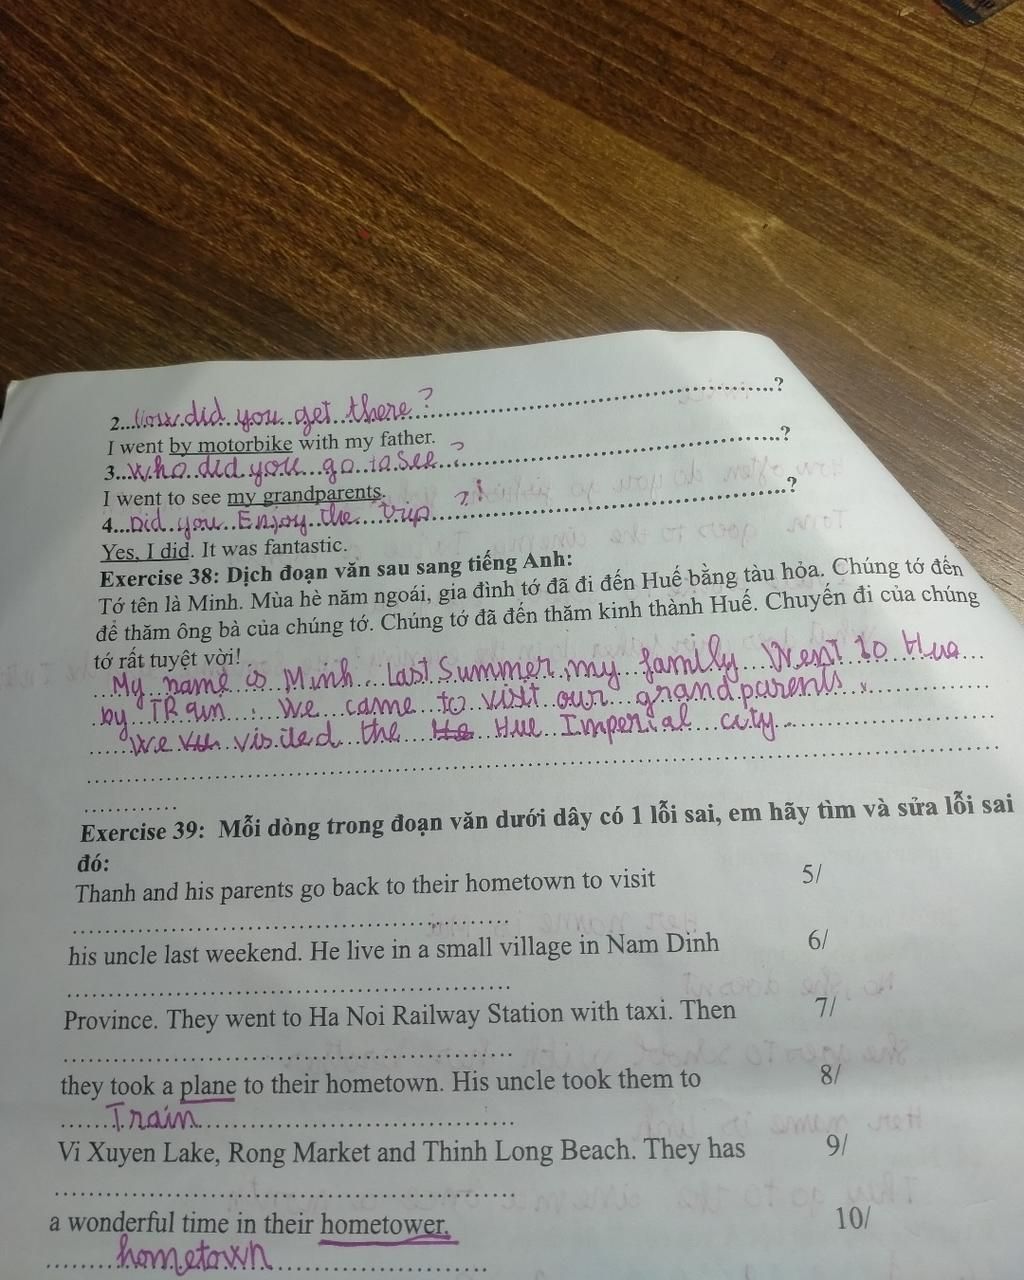 2...How did you get there?..............................?
I went by motorbike with my father.
3...who did you go to see?..............................?
I went to see my grandparents.
4...Did you Enjoy the trip?..............................?
Yes, I did. It was fantastic.
Exercise 38: Dịch đoạn văn sau sang tiếng Anh:
Tớ tên là Minh. Mùa hè năm ngoái, gia đình tớ đã đi đến Huế bằng tàu hỏa. Chúng tớ đến
để thăm ông bà của chúng tớ. Chúng tớ đã đến thăm kinh thành Huế. Chuyến đi của chúng
tớ rất tuyệt vời!
My name is Minh. Last Summer, my family Went to Hua
by TRain. We came to visit our grandparents.
We visited the Hue Imperial city.
Exercise 39: Mỗi dòng trong đoạn văn dưới dây có 1 lỗi sai, em hãy tìm và sửa lỗi sai
đó:
Thanh and his parents go back to their hometown to visit 5/
his uncle last weekend. He live in a small village in Nam Dinh 6/
Province. They went to Ha Noi Railway Station with taxi. Then 7/
they took a plane to their hometown. His uncle took them to 8/
Train
Vi Xuyen Lake, Rong Market and Thinh Long Beach. They has 9/
a wonderful time in their hometower. 10/
hometown